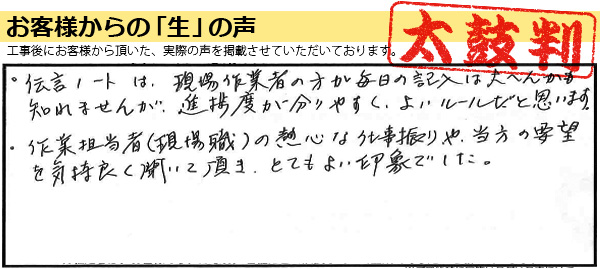 お客様からの「生」の声
工事後にお客様から頂いた、実際の声を掲載させていただいております。
太鼓判
・伝言ノートは、現場作業者の方が毎日の記入は大へんかも
知れませんが、進捗度が分りやすく、よいルールだと思います。
・作業担当者(現場職)の熱心な仕事振りや、当方の要望
を気持良く聞いて頂き、とてもよい印象でした。